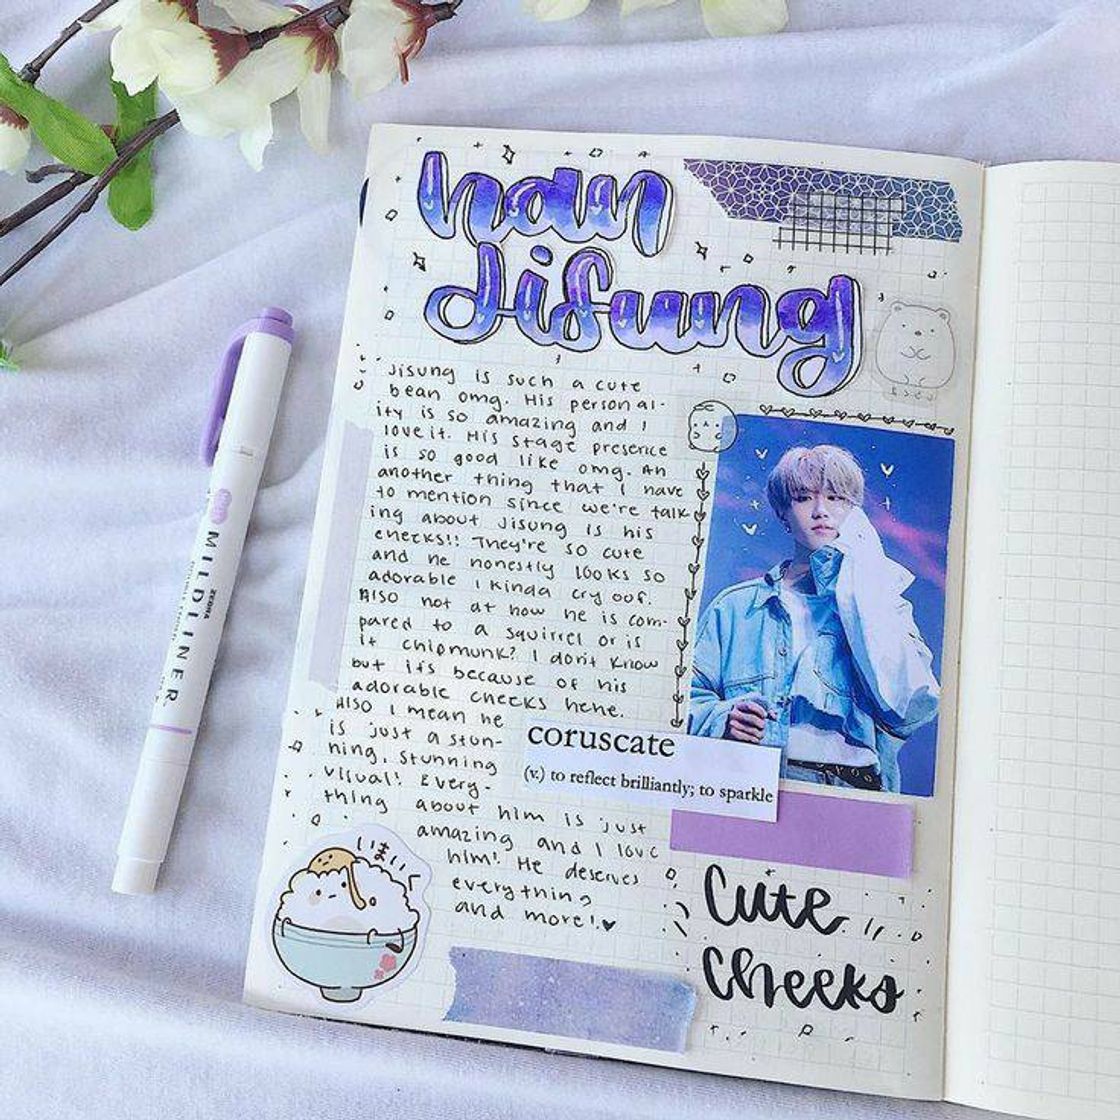 han
Jisung
Jisung is such a cute
bean omg. His personal-
ity is so amazing and I
love it. His stage presence
is so good like omg. An
another thing that I have
to mention since we're talk
ing about Jisung is his
cheeks!! They're so cute
and he honestly looks so
adorable I kinda cry oof.
Also not at how he is com-
pared to a squirrel or is
it chipmunk? I don't know
but its because of his
adorable cheeks hehe.
Also I mean he
is just a stun-
ning, stunning
visual! Every-
thing about him is just
amazing and I love
him! He deserves
everything
and more!♥
coruscate
(v.) to reflect brilliantly; to sparkle
Cute
Cheeks
ZEBRA
MILDLINER